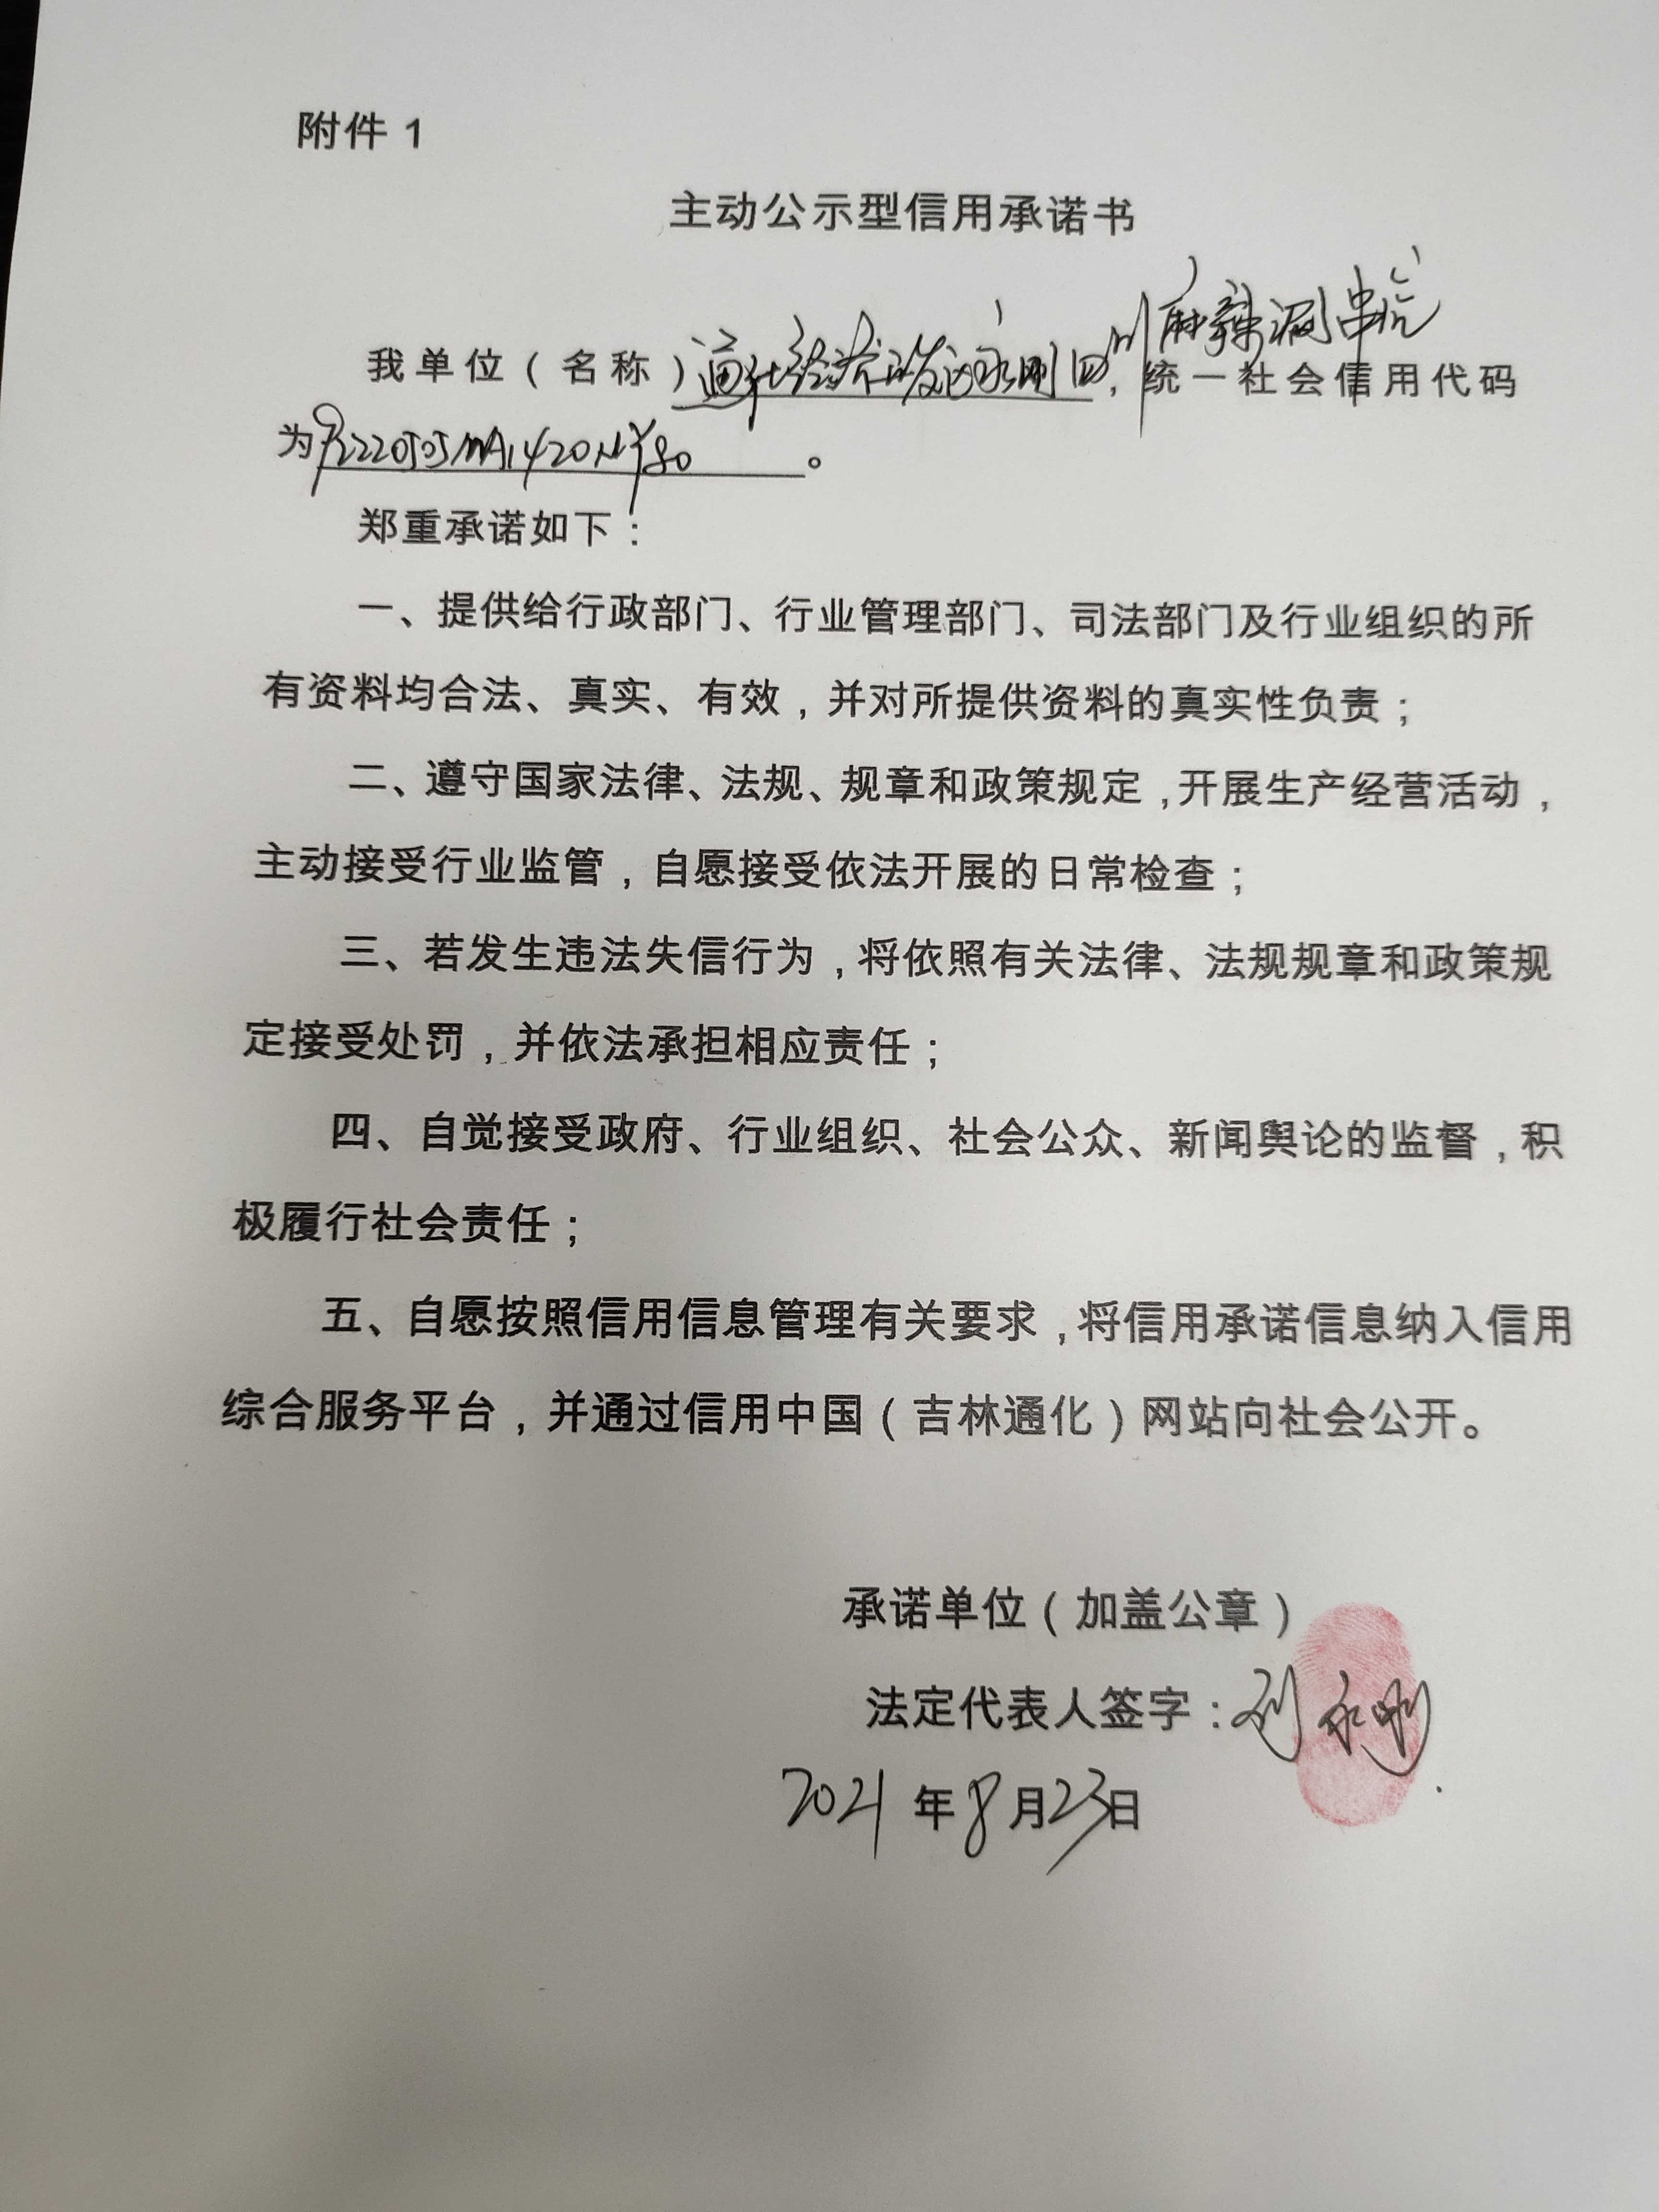 附件 1
主动公示型信用承诺书
我单位（名称）通化经济开发区永刚四川麻辣涮串店，统一社会信用代码
为92220505MA1420NY80。
郑重承诺如下：
一、提供给行政部门、行业管理部门、司法部门及行业组织的所
有资料均合法、真实、有效，并对所提供资料的真实性负责；
二、遵守国家法律、法规、规章和政策规定，开展生产经营活动，
主动接受行业监管，自愿接受依法开展的日常检查；
三、若发生违法失信行为，将依照有关法律、法规规章和政策规
定接受处罚，并依法承担相应责任；
四、自觉接受政府、行业组织、社会公众、新闻舆论的监督，积
极履行社会责任；
五、自愿按照信用信息管理有关要求，将信用承诺信息纳入信用
综合服务平台，并通过信用中国（吉林通化）网站向社会公开。
承诺单位（加盖公章）
法定代表人签字：刘永刚
2021年8月23日